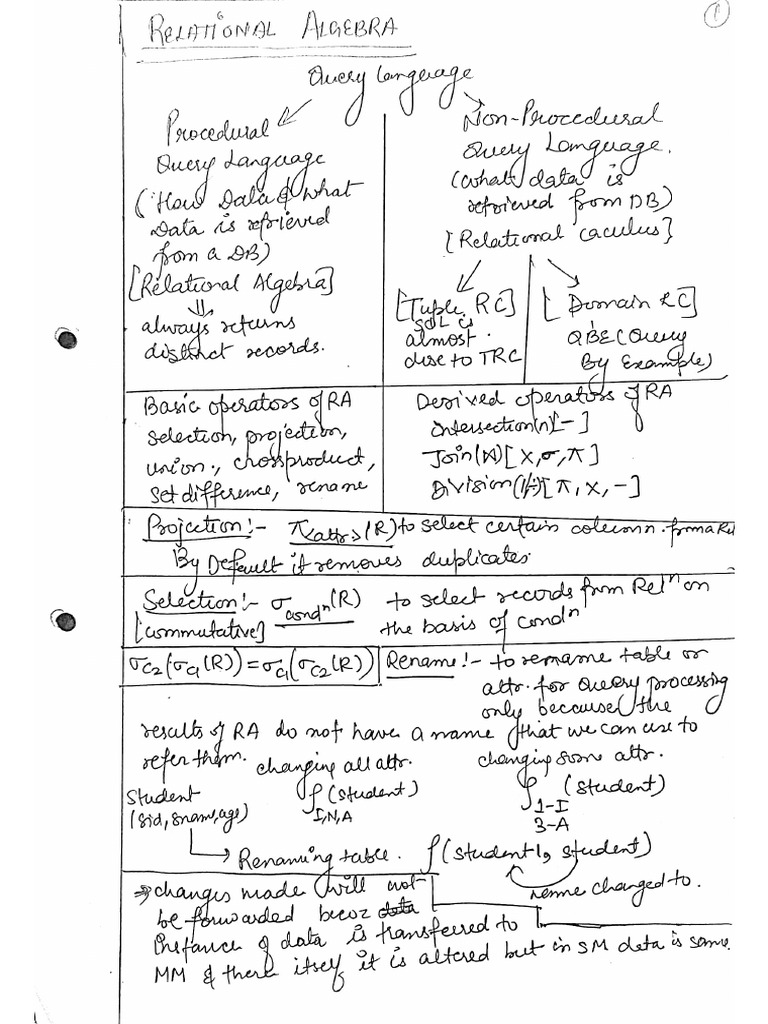 RELATIONAL ALGEBRA
1
Query Language
Procedural
Query Language
(How Data & what
Data is retrieved
from a DB)
[Relational Algebra]
always returns
distinct records.
Non-Procedural
Query Language.
(what data is
retrieved from DB)
[Relational caculus]
[Tuple RC]
SQL is
almost
close to TRC
[Domain RC]
QBE (Query
By Example)
Basic operators of RA
selection, projection,
union, crossproduct,
set difference, rename
Derived operators of RA
Intersection(∩)[-]
Join(⋈)[X,σ,π]
Division(/,÷)[π,X,-]
Projection:- π<attrs>(R) to select certain column from a Rel
By Default it removes duplicates.
Selection:- σcondⁿ(R) to select records from Relⁿ on
[commutative] the basis of condⁿ
σC2(σC1(R))=σC1(σC2(R))
Rename:- to rename table or
attr. for Query processing
only because the
results of RA do not have a name that we can use to
refer them.
changing all attr. changing some attr.
Student ρ(Student) ρ(student)
(sid, sname, age) I,N,A 1-I
3-A
Renaming table. ρ(student1, student)
name changed to.
changes made will not
be forwarded becoz data
instance of data is transferred to
MM & there itself it is altered but in SM data is same